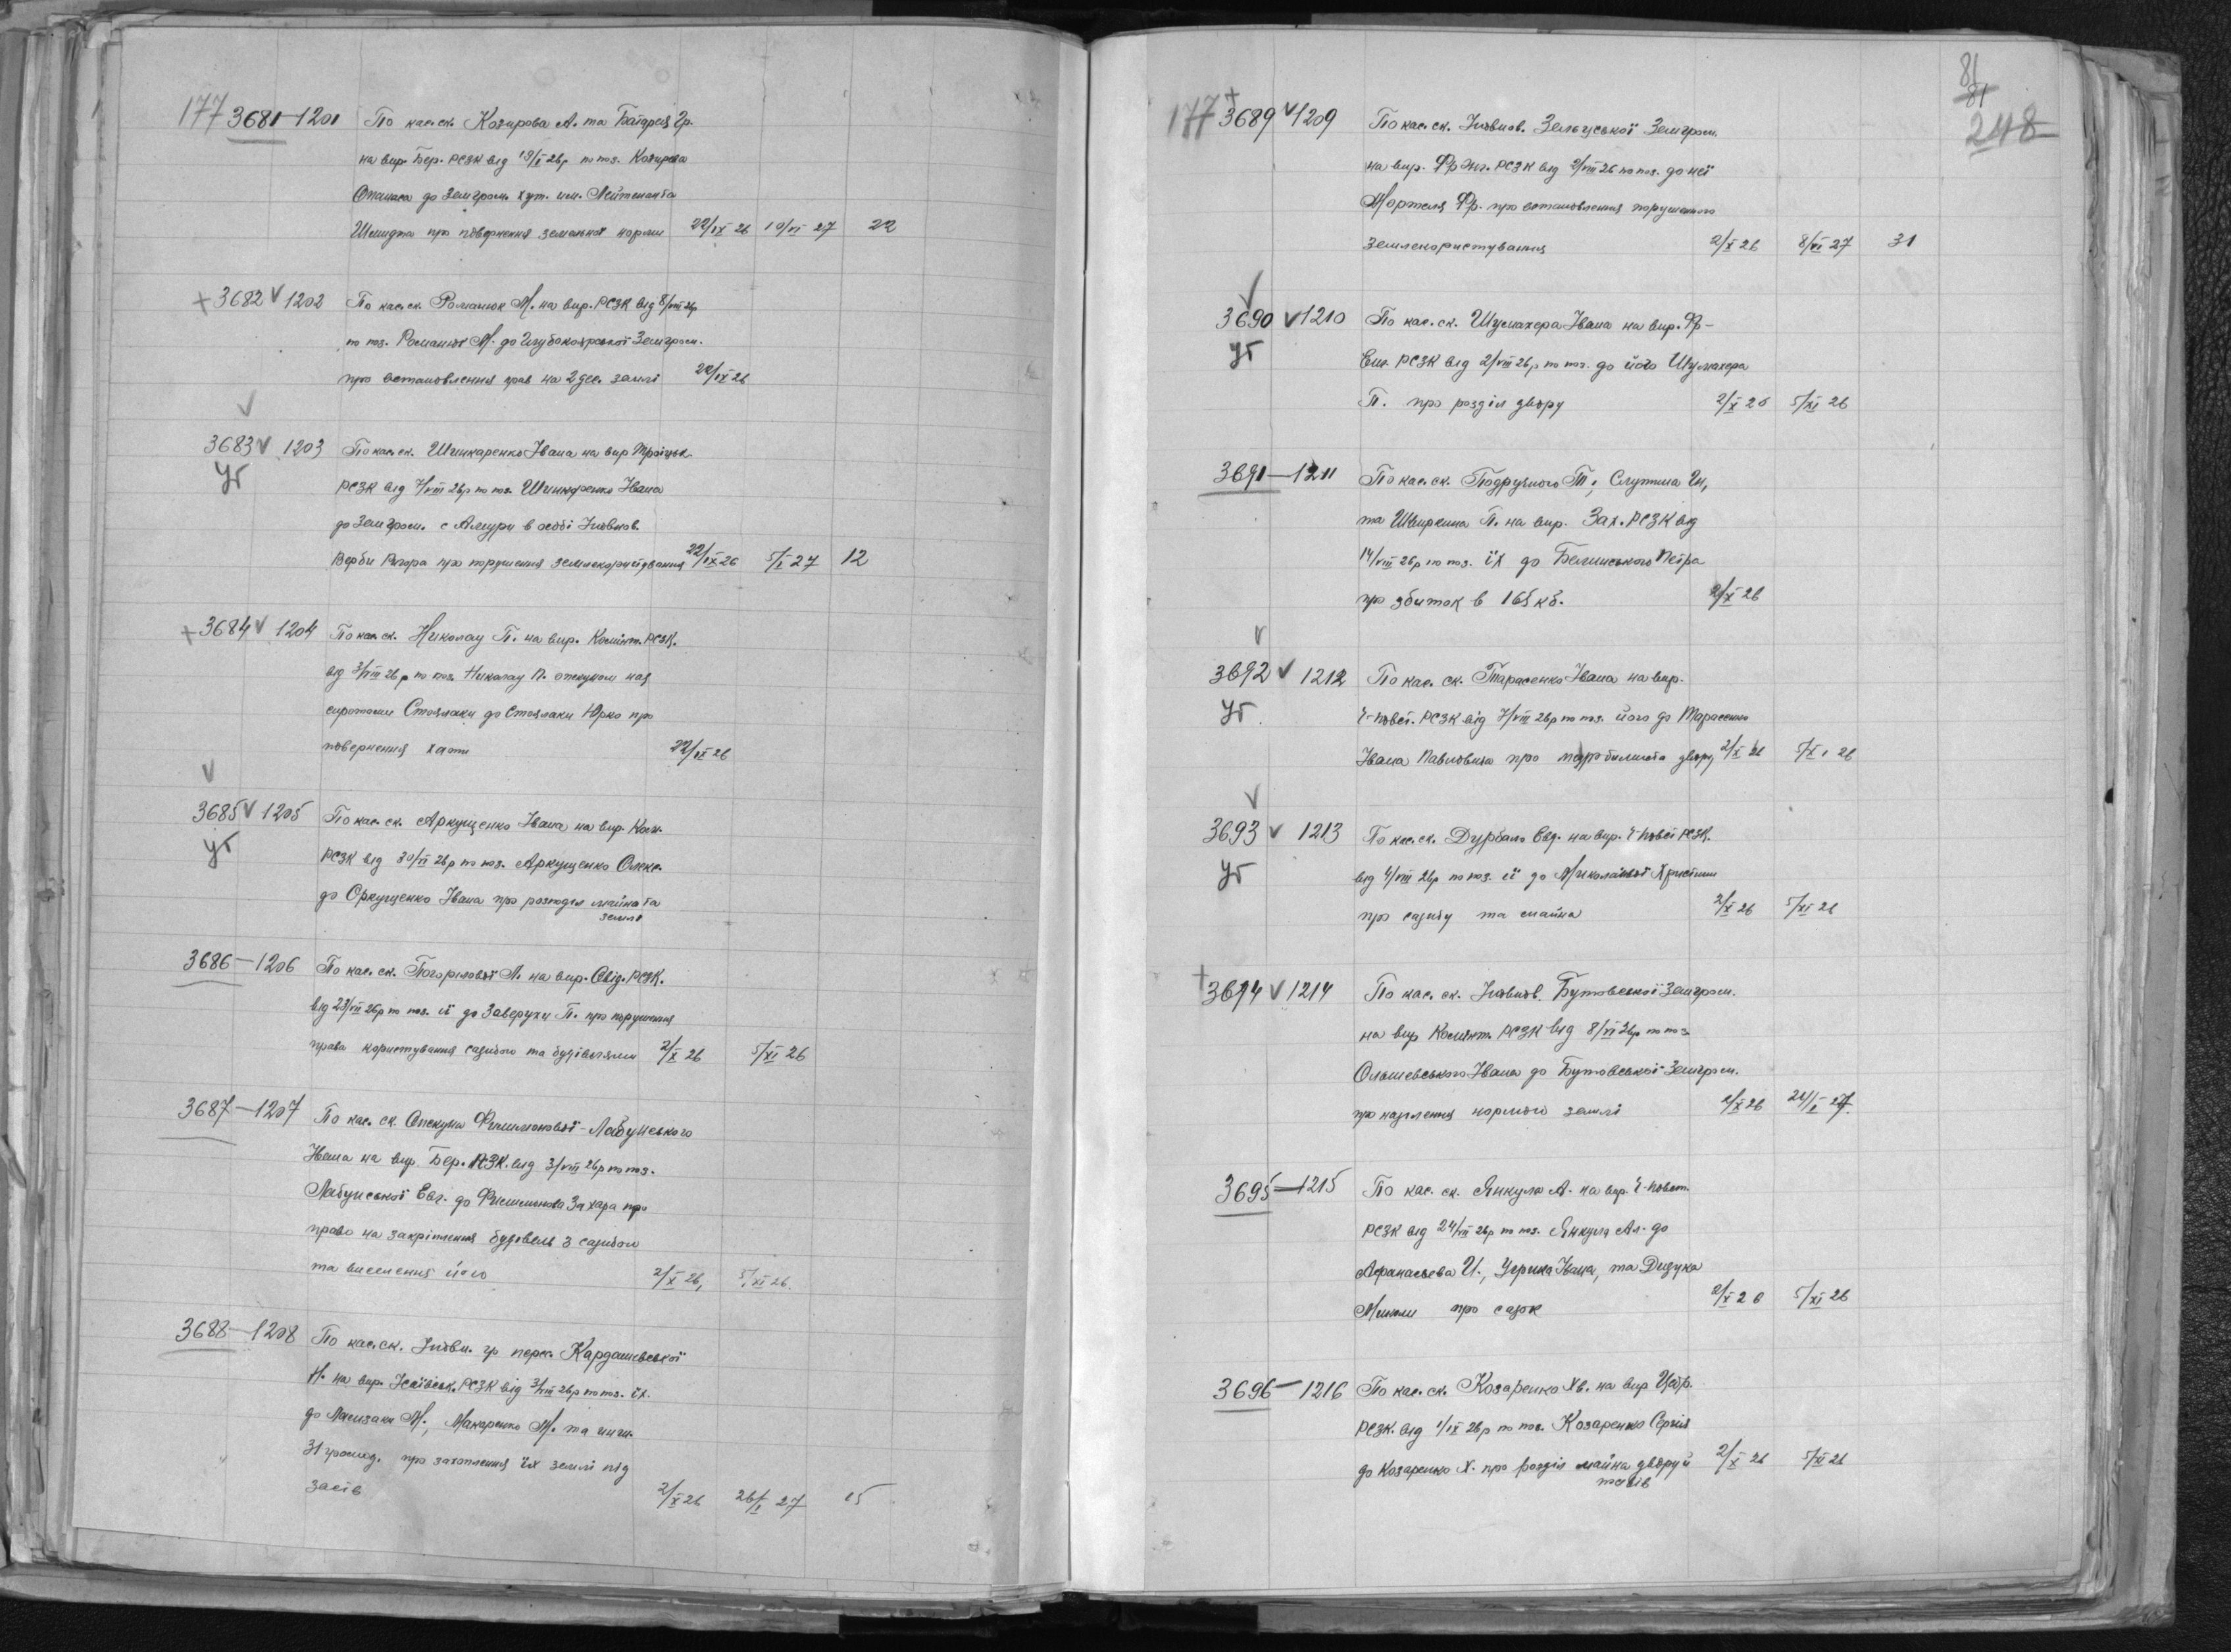 177 3681 — 1201 По кас. ск. Козирова А. та Багарея Гр.
на вир. Бер. РСЗК від 19/X 26р. по поз. Козирева
Опанаса до Земгром. хут. им. Лейтенанта
Шмидта про повернення земельної норми 22/IX 26 10/VI 27 22
+ 3682 V 1202 По кас. ск. Романюк М. на вир. РСЗК від 8/VIII 26р
по поз. Романюк М. до Глубокоярської Земгром.
про встановлення прав на 2 дес. землі 22/IX 26
V
3683 V 1203 По кас. ск. Шинкаренко Івана на вир Троїцьк.
УГ РСЗК від 7/VIII 26р по поз. Шинкаренко Івана
до Земгром. с Амури в особі Уповнов.
Верби Ригора про порушення землекористування 22/IX 26 5/I 27 12
+ 3684 V 1204 По кас. ск. Николау П. на вир. Комінт. РСЗК.
від 3/VIII 26р по поз. Николау П. опекуном над
сиротами Стоялаки до Стоялаки Юрко про
повернення хати 22/IX 26
V
3685 V 1205 По кас. ск. Аркущенко Івана на вир. Кам.
УГ РСЗК від 30/VI 26р по поз. Аркущенко Олекс.
до Оркущенко Івана про розподіл майна та
землі
3686 — 1206 По кас. ск. Погорілової А. на вир. Свід. РСЗК.
від 23/VII 26р по поз. її до Заверухи П. про порушення
права користування садибою та будівлями 2/X 26 5/XI 26
3687 — 1207 По кас. ск. Опекуна Филимонової - Лабунського
Івана на вир. Бер. РСЗК. від 3/VIII 26р по поз.
Лабунської Евг. до Филимонова Захара про
право на закріплення будовель з садибою
та виселення його 2/X 26, 5/XI 26.
3688 — 1208 По кас. ск. Уповн. гр перес. Кардашевської
Н. на вир. Ісаївськ. РСЗК від 3/VIII 26р по поз. їх.
до М., Макаренко М. та инш.
31 громад. про захоплення їх землі під
засів 2/X 26 26/I 27 15
81
81
248
177 + 3689 V 1209 По кас. ск. Уповнов. Зельцської Земгром.
на вир. Фр Енг. РСЗК від 2/VIII 26 по поз. до неї
Мартеля Фр. про встановлення порушеного
землекористування 2/X 26 8/VI 27 31
V
3690 V 1210 По кас. ск. Шумахера Івана на вир. Ф-
УГ Енг. РСЗК від 2/VIII 26р по поз. до його Шумахера
П. про розділ двору 2/X 26 5/XI 26
3691 — 1211 По кас. ск. Подручного Т.,
та П. на вир. Зах. РСЗК від
14/VIII 26р по поз. їх до Белинського Петра
про збиток в 165 кб. 2/X 26
V
3692 V 1212 По кас. ск. Тарасенко Івана на вир.
УГ. РСЗК від 7/VIII 26р по поз. його до Тарасенко
Івана Павловича про двору 2/X 26 5/XI 26
V
3693 V 1213 По кас. ск. Дурбало Евд. на вир. РСЗК.
УГ від 4/VIII 26р по поз. її до Миколаївої Христини
про садибу та майна 2/X 26 5/XI 26
+ 3694 V 1214 По кас. ск. Уповнов. Бутовської Земгром.
на вир Комінт. РСЗК від 8/VI 26р по поз
Ольшевського Івана до Бутовської Земгром.
про наділення нормою землі 2/X 26 24/I 27.
3695 — 1215 По кас. ск. Янкула А. на вир.
РСЗК від 24/VII 26р по поз. Янкула Ал. до
Афанасьева И., Івана, та Дизука
Миколи про садок 2/X 26 5/XI 26
3696 — 1216 По кас. ск. Козаренко Хв. на вир Цебр.
РСЗК. від 1/IX 26р по поз. Козаренко Сергія
до Козаренко Х. про розділ майна двору й 2/X 26 5/XI 26